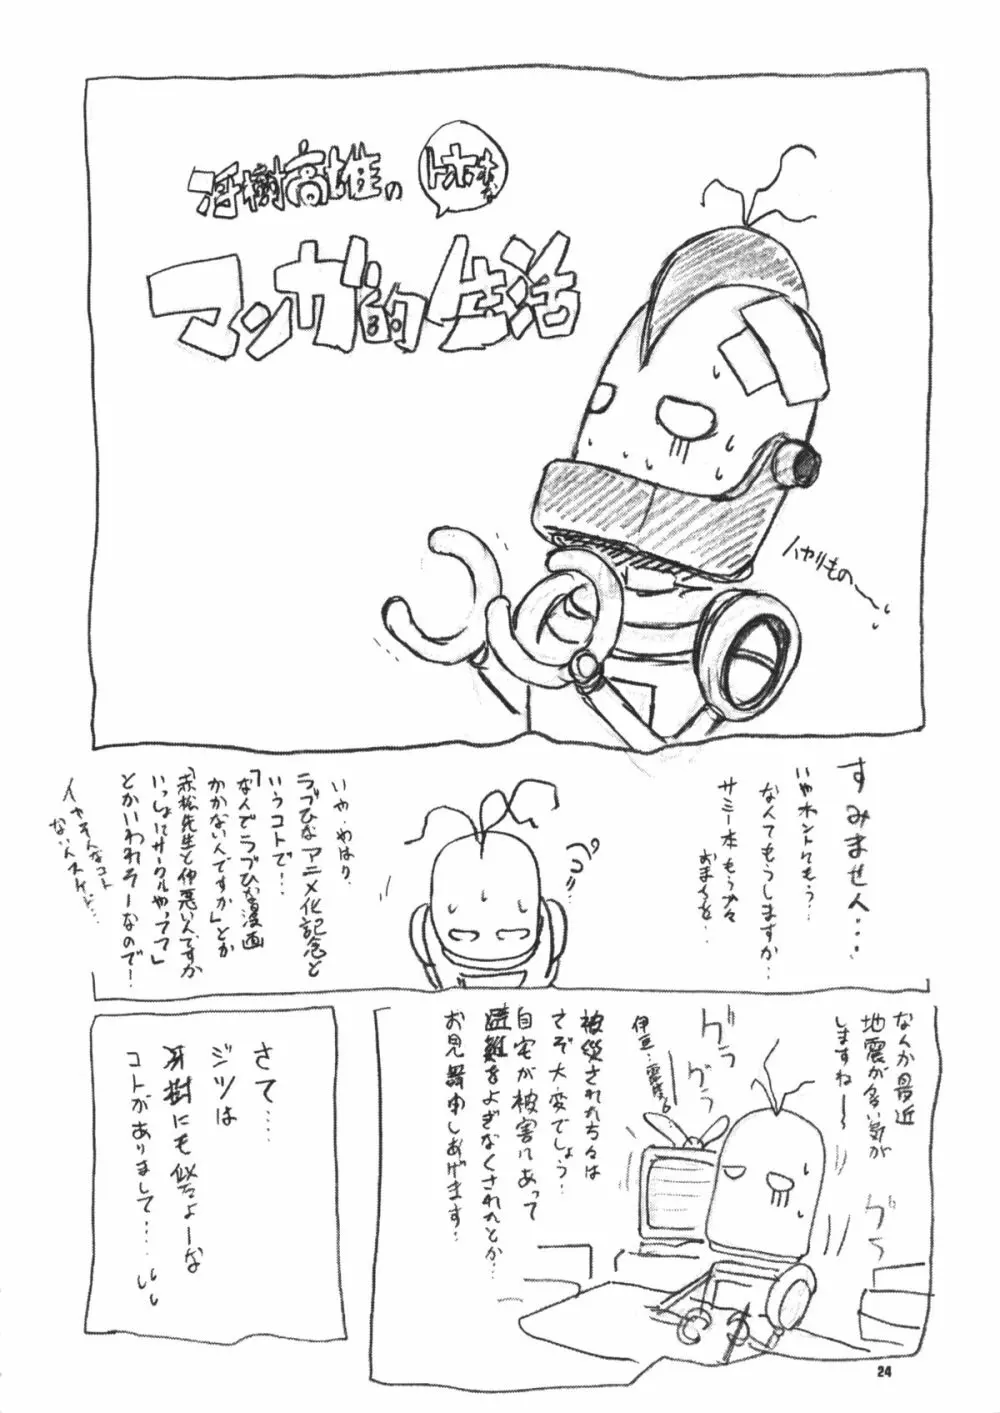 冴樹高雄の
トホホな
マンガ的生活
ハヤリもの〜
すみません・・・
いやホントにもう…
なんてもうしますか…
サミー本もう少々
おまちを…
ペコリ
いや・やはり
ラブひなアニメ化記念と
いうコトで!…
「なんでラブひな漫画
かかないんですか」とか
「赤松先生と仲悪いんですか
いっしょにサークルやってて」
とかいわれそーなので!
イヤそんなコト
ないんスけど…
なんか最近
地震が多い気が
しますね〜〜
グラ
グラ
グラ
伊豆・震度6
被災された方々は
さぞ大変でしょう…
自宅が被害にあって
避難をよぎなくされたとか…
お見舞申しあげます…
さて…
ジツは
冴樹にも似たよーな
コトがありまして…
24